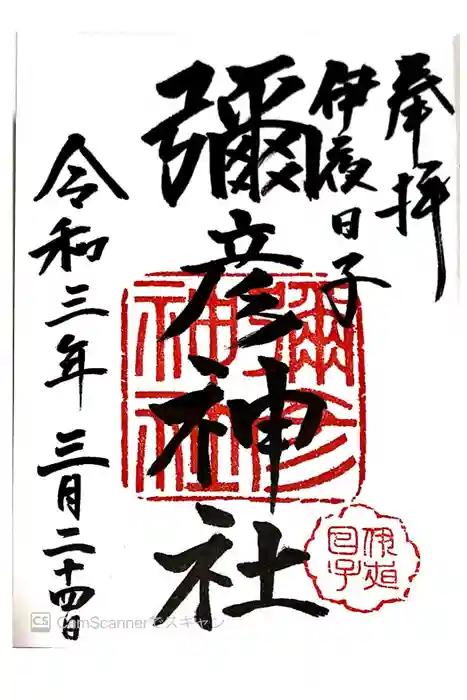 奉拝
伊夜日子
彌彦神社
令和三年 三月二十四日
彌彦
神社
日子
CS CamScannerでスキャン